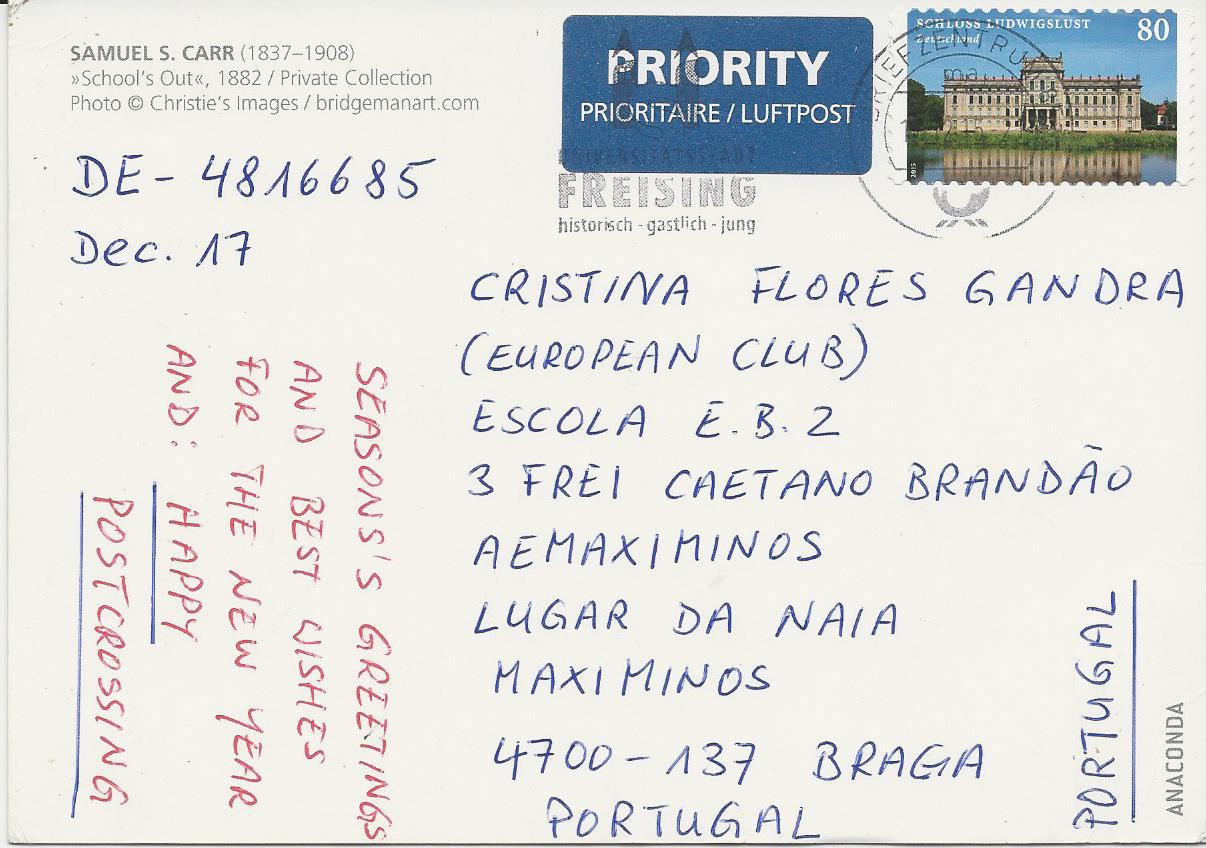 SAMUEL S. CARR (1837–1908)
»School's Out«, 1882 / Private Collection
Photo © Christie's Images / bridgemanart.com
PRIORITY
PRIORITAIRE / LUFTPOST
SCHLOSS LUDWIGSLUST
Deutschland
80
2015
BRIEFZENTRUM
UNIVERSITÄTSSTADT
FREISING
historisch - gastlich - jung
DE - 4816685
Dec. 17
SEASONS'S GREETINGS
AND BEST WISHES
FOR THE NEW YEAR
AND: HAPPY
POSTCROSSING
CRISTINA FLORES GANDRA
(EUROPEAN CLUB)
ESCOLA E.B. 2
3 FREI CAETANO BRANDÃO
AEMAXIMINOS
LUGAR DA NAIA
MAXIMINOS
4700-137 BRAGA
PORTUGAL
PORTUGAL
ANACONDA